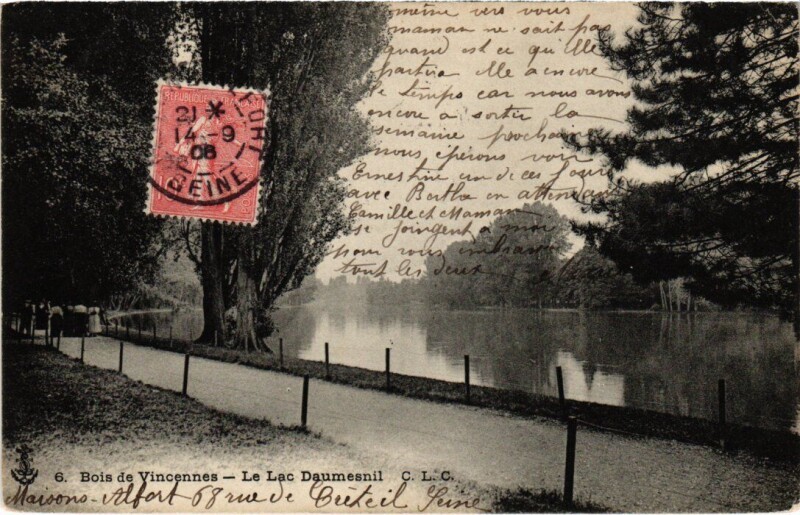 même vers vous
maman ne sait pas
quand est ce qu'Elle
partira Elle a encore
le temps car nous avons
encore à sortir la
semaine prochain
nous éspérons voir
Ernestine un de ces jour
avec Bertha en attendant
Camille et Maman
se joingent a moi
pour vous embrasser
tout les deux
REPUBLIQUE
21 *
14 - 9
06
SEINE
6. Bois de Vincennes — Le Lac Daumesnil C. L. C.
Maisons-Alfort 68 rue de Créteil Seine